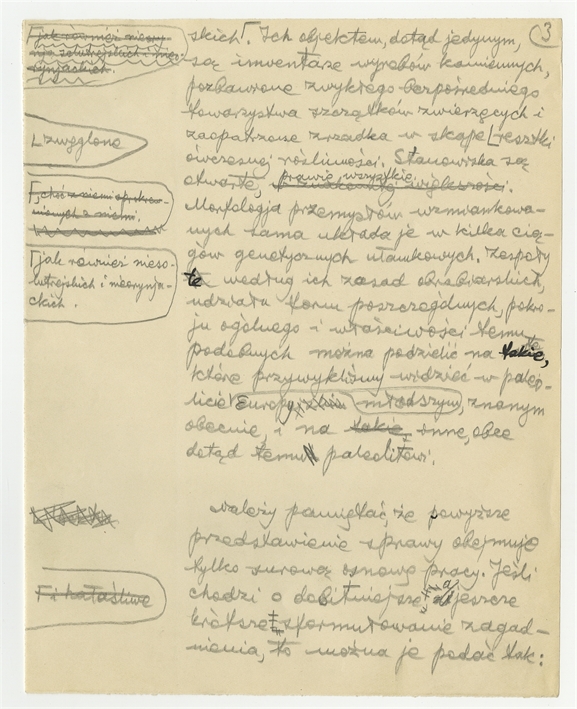 3
skich⌈. Ich objektem, dotąd jedynym,
są inwentarze wyrobów kamiennych,
pozbawione zwykłego bezpośredniego
towarzystwa szczątków zwierzęcych i
zaopatrzone zrzadka w skąpe ⌊ resztki
ówczesnej roślinności. Stanowiska są
otwarte, prawie wszystkie.
Morfologja przemysłów wzmiankowa-
nych sama układa je w kilka cią-
gów genetycznych ułamkowych. Zespoły
te według ich zasad obrabiarskich,
udziału form poszczególnych, pokro-
ju ogólnego i właściwości temu
podobnych można podzielić na te
które przywykliśmy widzieć w paleo-
licie Europy młodszym, znanym
obecnie, i na inne, obce
dotąd temu paleolitowi.
Należy pamiętać, że powyższe
przedstawienie sprawy obejmuje
tylko surową osnowę pracy. Jeśli
chodzi o dobitniejsze a jeszcze
krótsze sformułowanie zagad-
nienia, to można je podać tak:
⌈jak również nieso-
lutrejskich i nieoryniac-
⌊zwęglone
⌈, choć z niemi spokrew-
nionych z niemi.
⌈jak również nieso-
lutrejskich i nieorynja-
ckich.